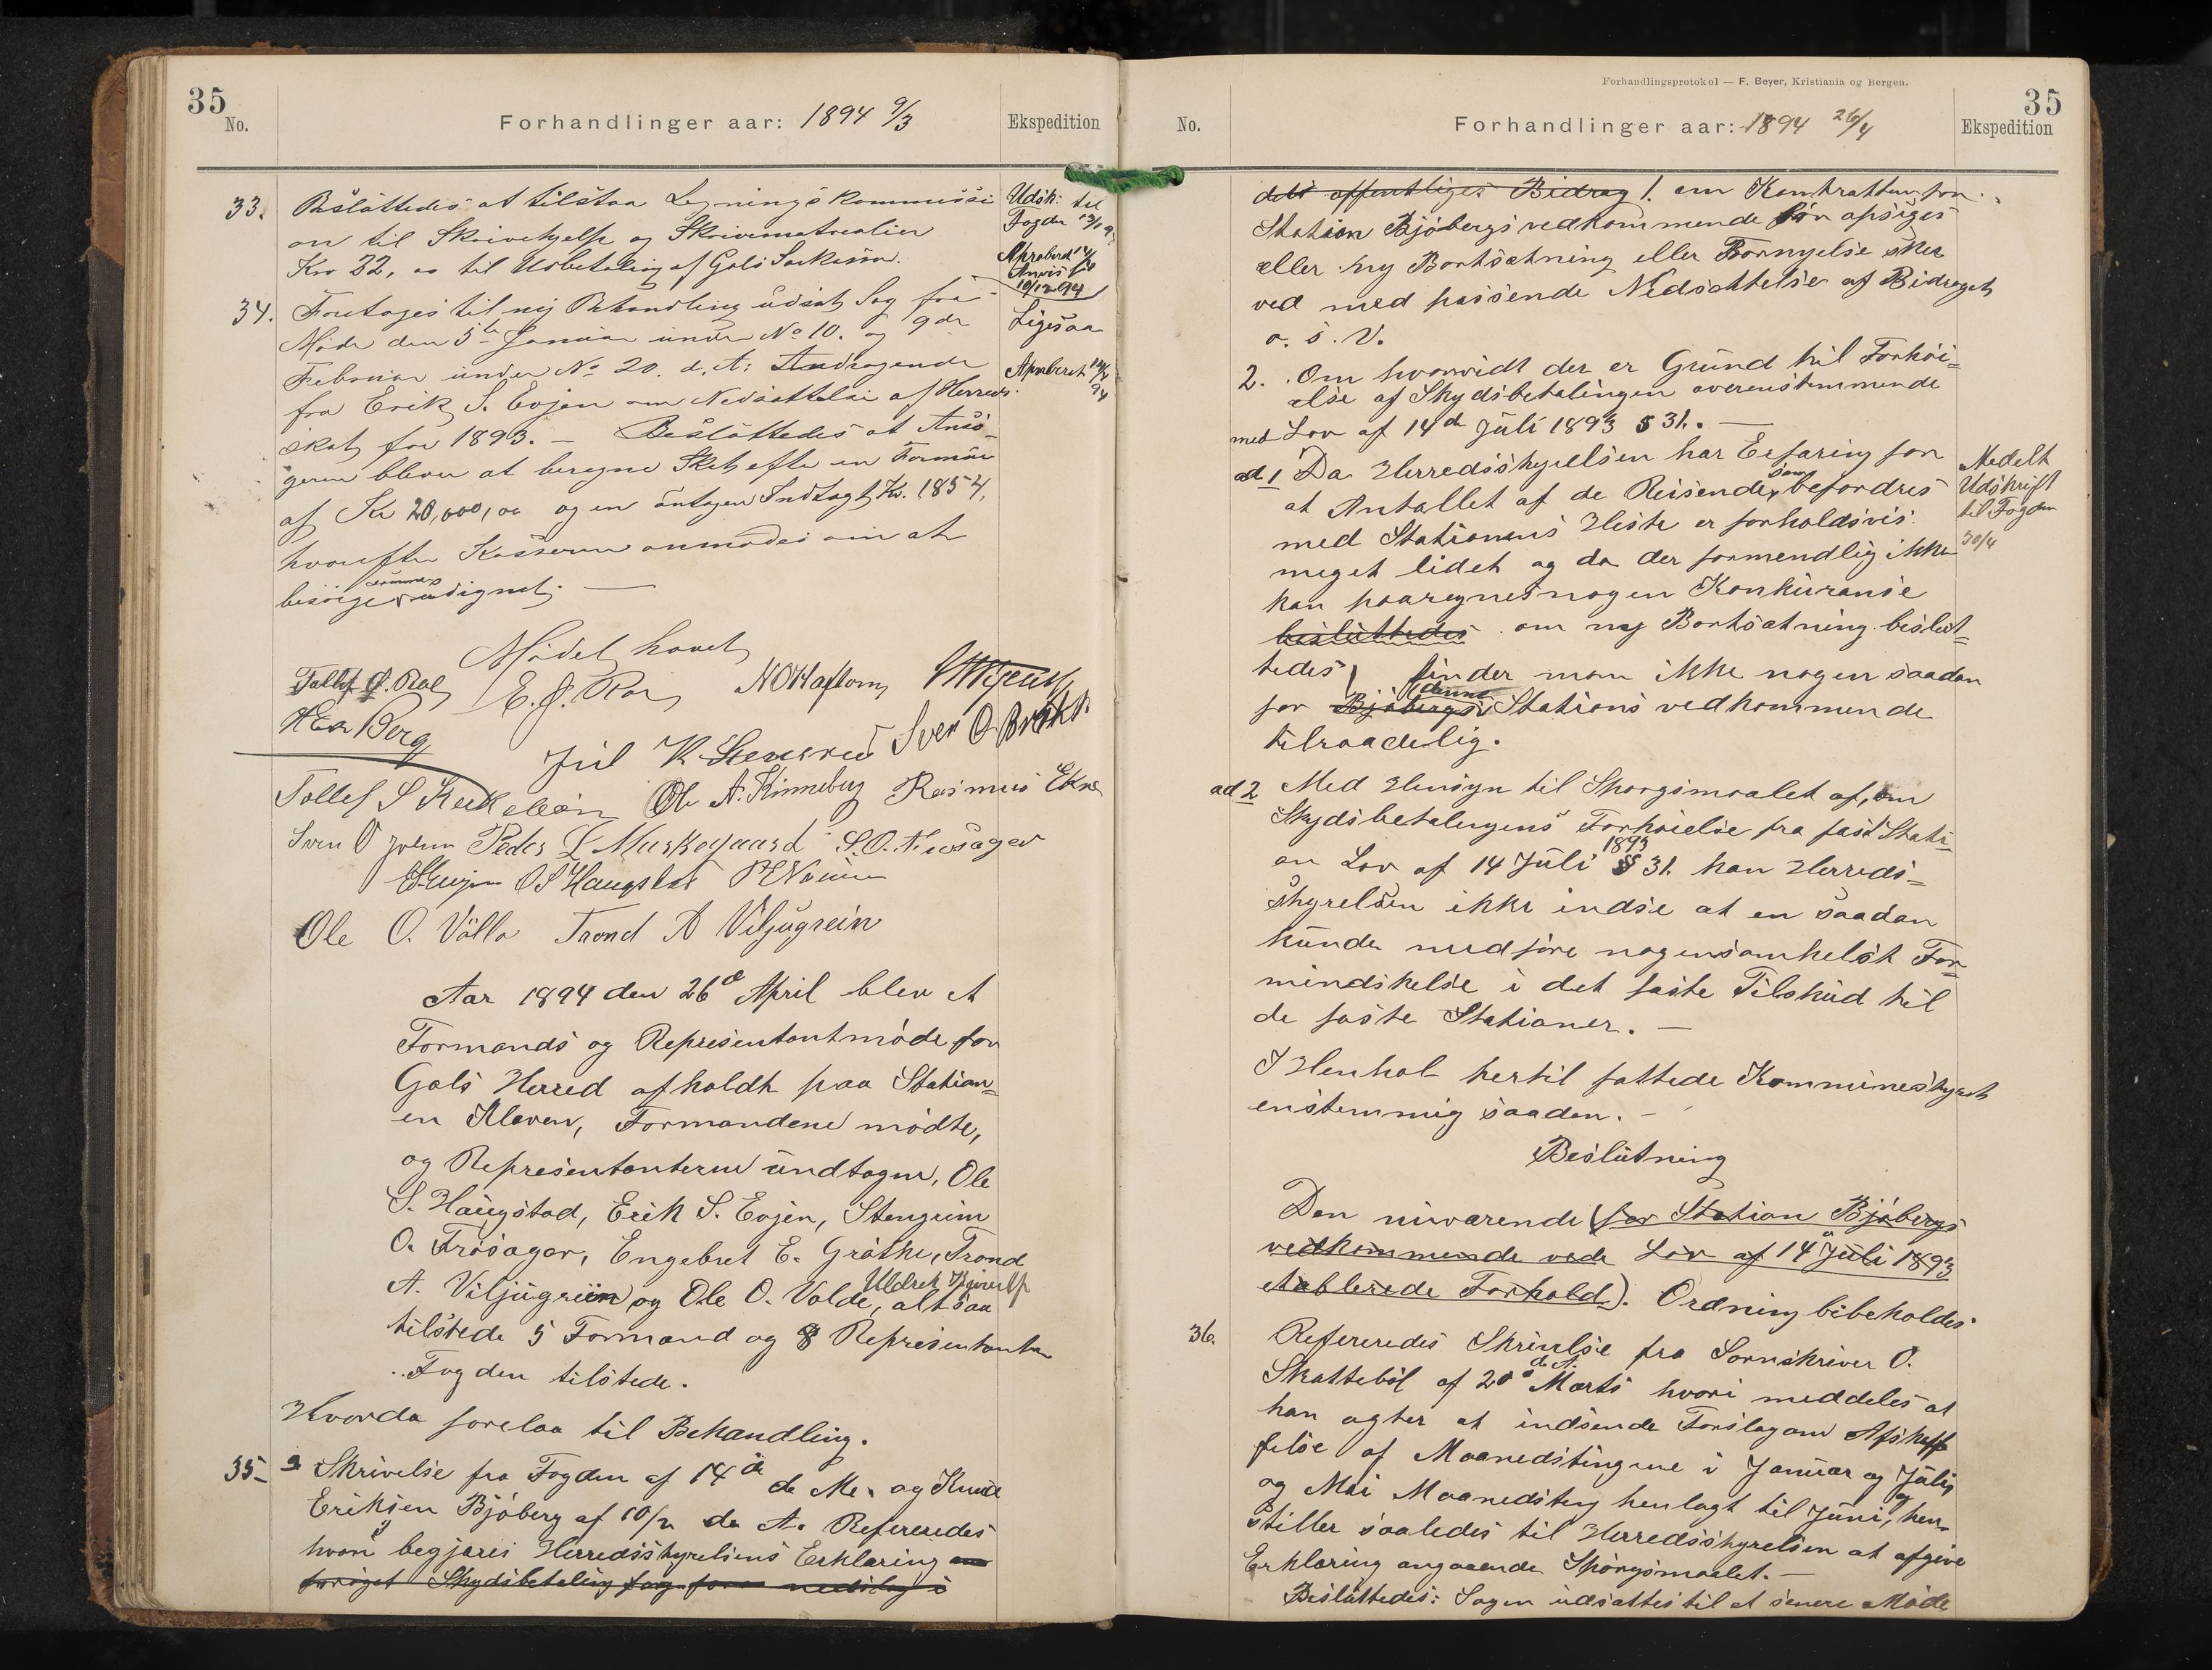 35
No.
Forhandlinger aar: 1894 9/3
Ekspedition
33. Besluttedes at tilstaa Ligningskommissi
on til Skrivehjelp og Skrivematrealier
Kro 32, oo til Udbetaling af Gols Sarkasse.
Udsk: til
Fogden
Aproberet
Anvist
10/12 94
34. Foretages til ny Behandling udsat Sag fra
Møde den 5te Januar under No 10. og 9de
Februar under No 20. d. A: Andragende
fra Erik S. Evjen om Nedsættelse af Herreds
skat for 1893. — Besluttedes at Ansø-
geren bliver at beregne Skat efter en Formue
af Kr 20,000,oo og en antagen Indtægt Kr. 1854,
hvorefter Kasseren anmodes om at
besørge samme udlignet. —
Ligesaa
Aproberet
94
Mødet hævet
E. J. Roe
H Ea Berg
Jul K. Stensrud Sven O. Bråkt.
Ole A. Kinneberg Rasmus Ekre
Peder L Muskegaard
O S Haugstad
Ole O. Völlo Trond A Viljugrein
Aar 1894 den 26d April blev et
Formands og Representantmøde for
Gols Herred afholdt paa Station=
en Kleven, Formandene mødte,
og Representanterne undtagen, Ole
S. Haugstad, Erik S. Evjen, Stengrim
O. Frøsager, Engebret E. Gröthe, Trond
A. Viljugrein og Ole O. Volde, altsaa
tilstede 5 Formænd og 8 Representanter
Fogden tilstede.
Hvorda forelaa til Behandling.
35 a Skrivelse fra Fogden af 14de de Me. og Knud
Eriksen Bjøberg af 10/2 de A. Refereredes
hvori begjæres Herredsstyrelsens Erklæring om
forøget Skydsbetaling nedslag i
Forhandlingsprotokol — F. Beyer, Kristiania og Bergen.
35
No.
Forhandlinger aar: 1894 26/4
Ekspedition
det offentliges Bidrag 1. om Kontrakten for
Station Bjøbergs vedkommende bør opsiges
eller ny Bortsætning eller Fornyelse sker
ved med passende Nedsættelse af Bidraget
o. s. v.
2. Om hvorvidt der er Grund til Forhøi=
else af Skydsbetalingen overenstemmende
med Lov af 14de Juli 1893 § 31. —
ad 1 Da Herredsstyrelsen har Erfaring for
at Antallet af de Reisende, som befordres
med Stationens Heste er forholdsvis
meget lidet og da der formendlig ikke
kan paaregnes nogen Konkuranse
besluttedes om ny Bortsætning beslut=
tedes finder man ikke nogen saadan
for Bjøbergs denne Stations vedkommende
tilraadelig.
Medelt
Udskrift
til Fogden
30/4
ad 2 Med Hensyn til Sporgsmaalet af, om
Skydsbetalingens Forhøielse fra fast Stati=
on Lov af 14 Juli 1893 § 31. kan Herreds=
styrelsen ikke indse at en saadan
kunde medføre nogensomhelst For=
mindskelse i det faste Tilskud til
de faste Stationer. —
I Henhol hertil fattede Kommunestyret
enstemmig saadan. —
Beslutning
Den nuværende (for Station Bjøbergs
vedkommende ved Lov af 14de Juli 1893
etablerede Forhold). Ordning bibeholdes
36. Refereredes Skrivelse fra Sornskriver O.
Skattebøl af 20d Marts d. A. hvori meddeles at
han agter at indsende Forslag om Afskaf
felse af Maanedstingene i Januar og Juli
og Mai Maanedsting henlagt til Juni, og hen=
stiller saaledes til Herredsstyrelsen at afgive
Erklæring angaaende Spørgsmaalet. —
Besluttedes: Sagen udsættes til et senere Møde